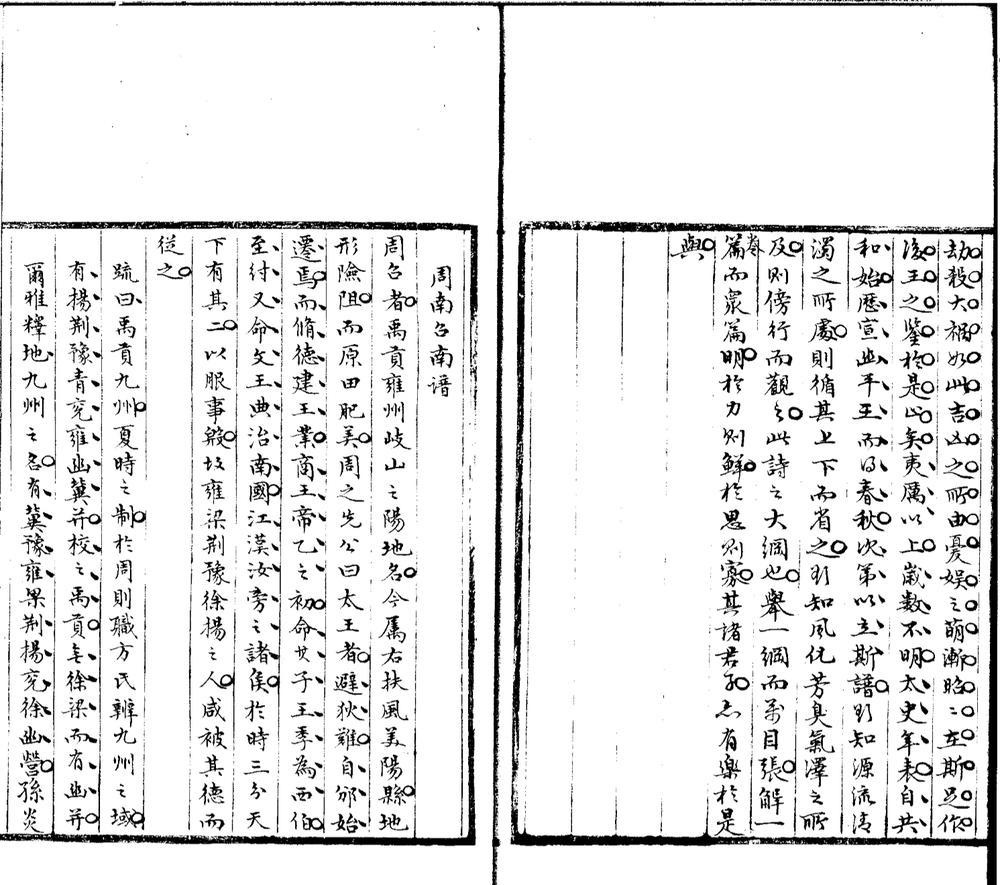 劫殺大禍如此吉凶之所由憂娛之萌漸昭〻在斯足作
後王之鑒於是止矣夷厲以上歲數不明太史年表自共
和始歷宣幽平王而得春秋次第以立斯譜則知源流清
濁之所處則循其上下而省之則知風化芳臭氣澤之所
及則傍行而觀之此詩之大綱也舉一綱而萬目張解一
卷篇而眾篇明於力則鮮於思則寡其諸君子亦有樂於是
與
周南召南譜
周召者禹貢雍州岐山之陽地名今属右扶風美陽縣地
形險阻而原田肥美周之先公曰太王者避狄難自邠始
遷焉而脩德建王業商王帝乙之初命其子王季為西伯
至紂又命文王典治南國江漢汝旁之諸侯於時三分天
下有其二以服事殷故雍梁荆豫徐揚之人咸被其德而
從之
疏曰禹貢九州夏時之制於周則職方氏辨九州之域
有揚荆豫青兖雍幽冀并校之禹貢無徐梁而有幽并
爾雅釋地九州之名有冀豫雍荆揚兖徐幽營孫炎